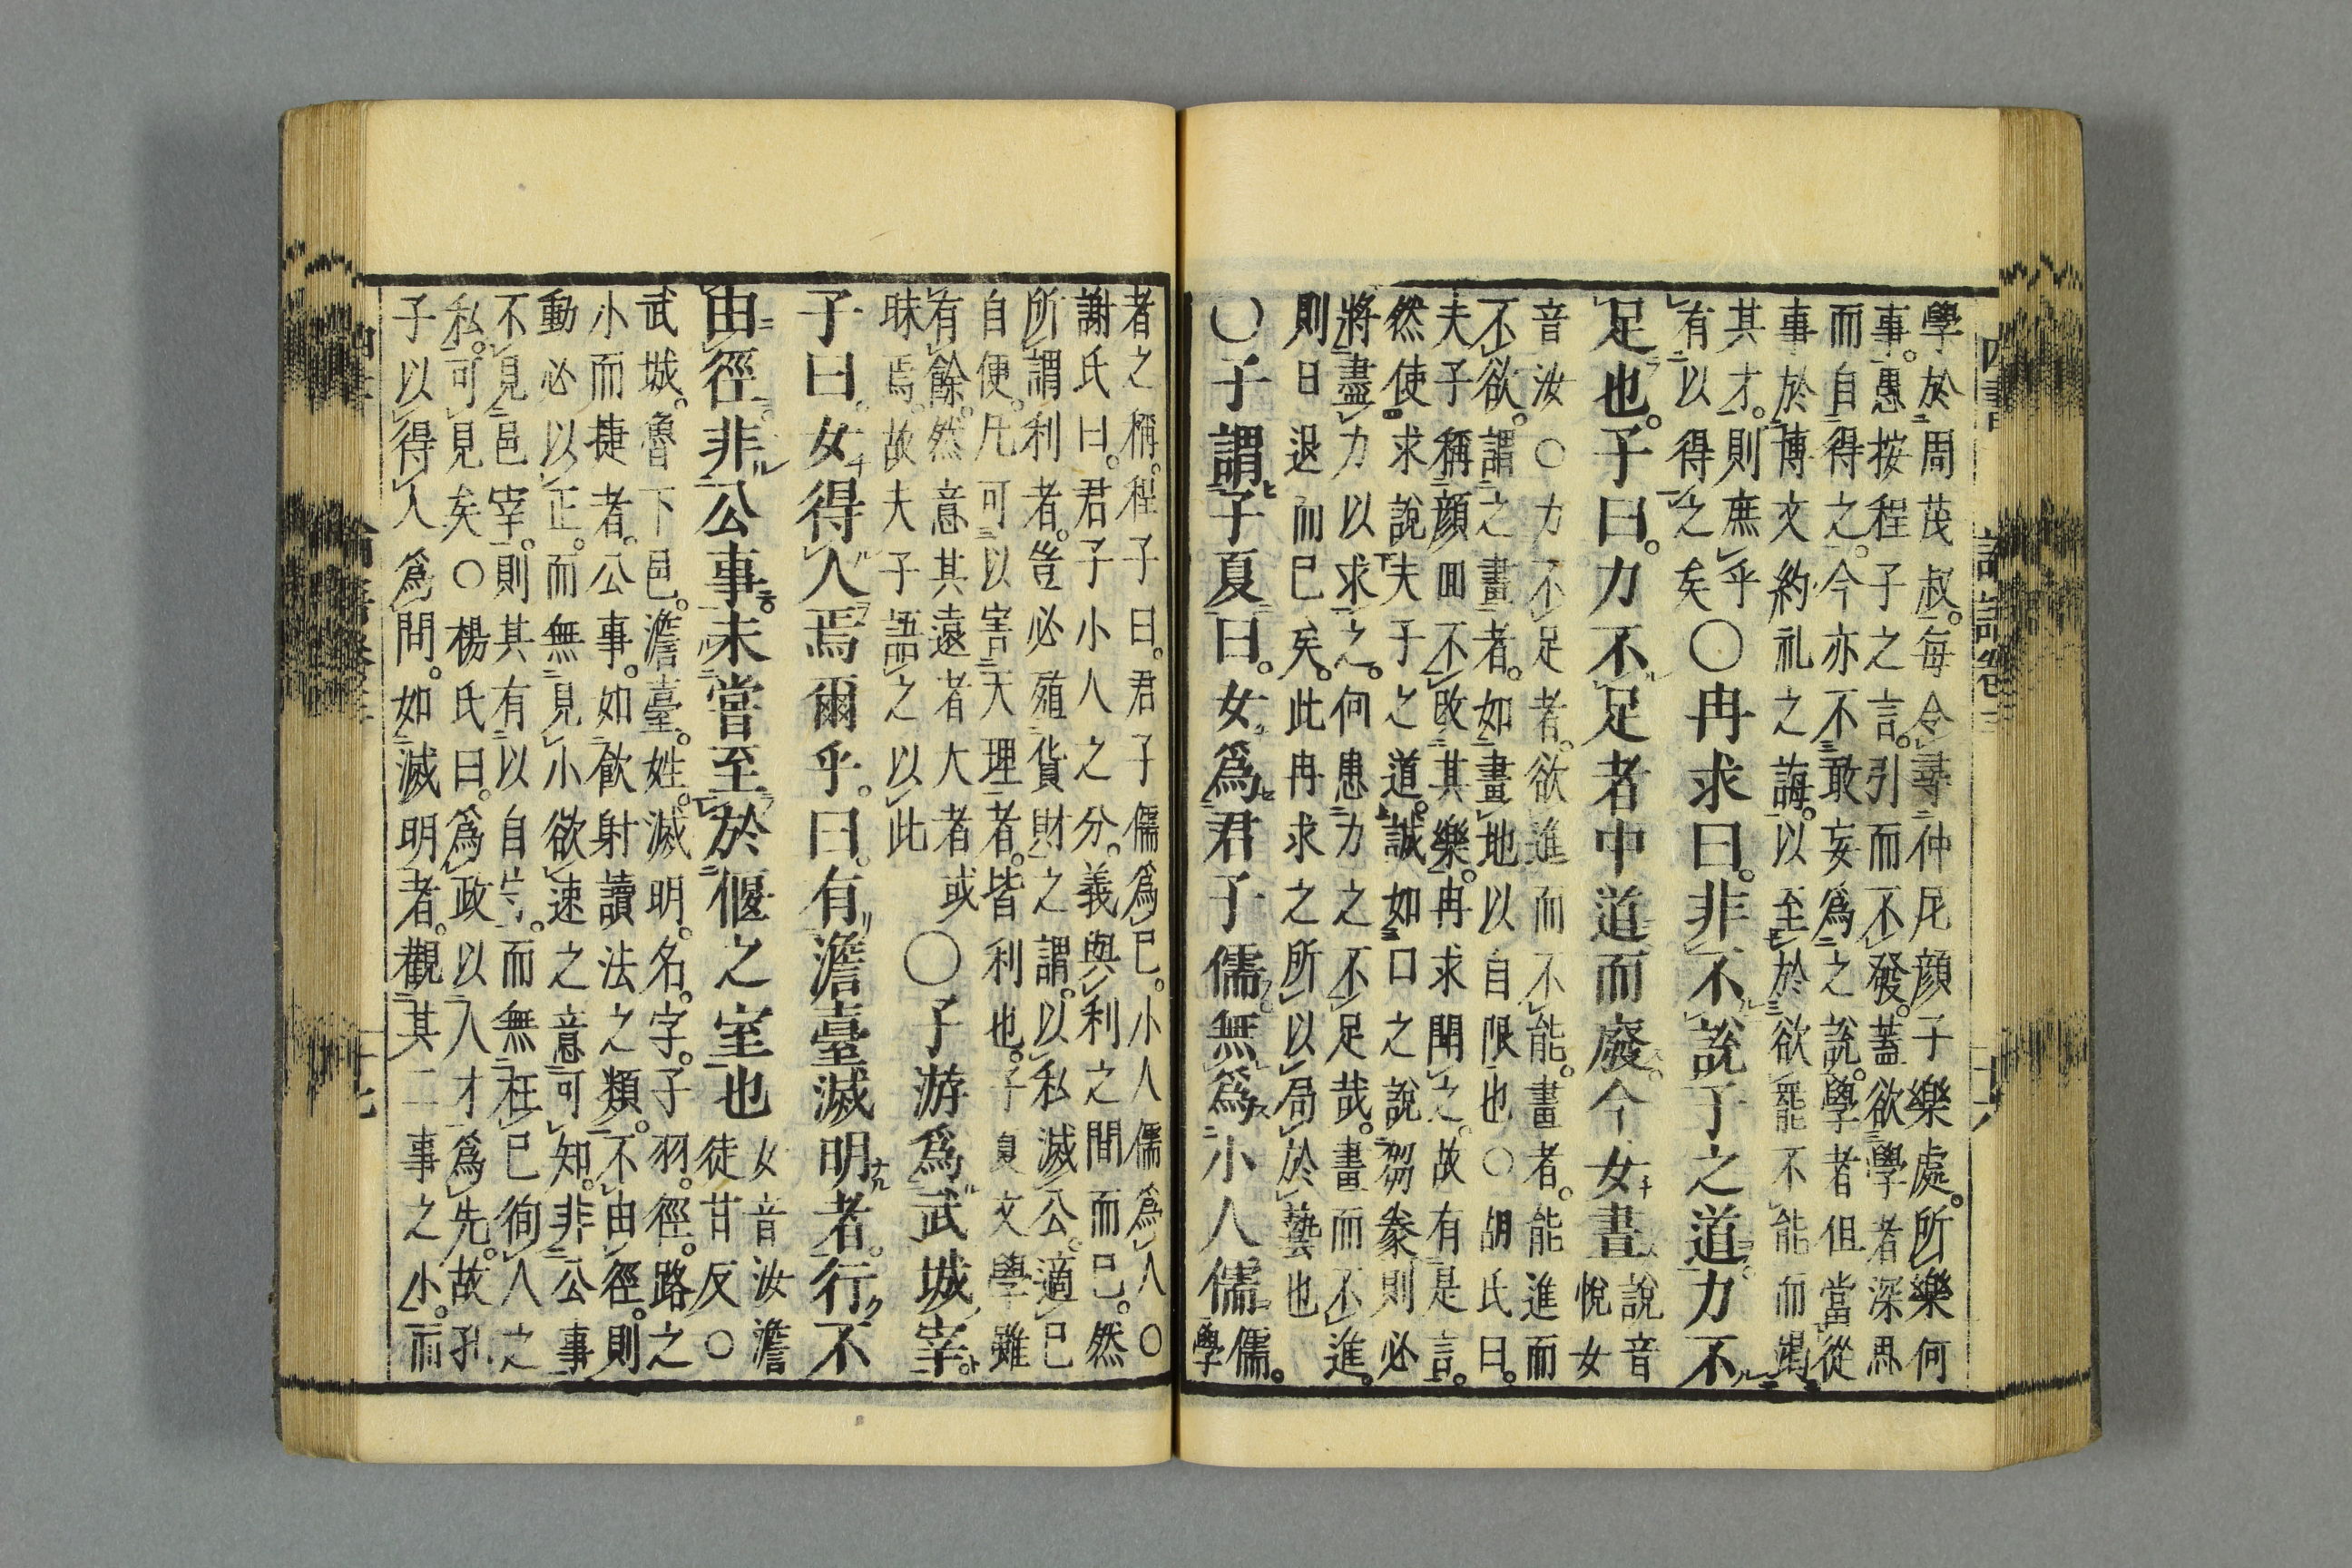 學於周茂叔。每令尋仲尼顏子樂處。所樂何
事。愚按程子之言。引而不發。蓋欲學者深思
而自得之。今亦不敢妄爲之說。學者但當從
事於博文約礼之誨。以至於欲罷不能而竭
其才。則庶乎
有以得之矣〇冉求曰。非不說子之道。力不
足也。子曰。力不足者中道而廢。今女畫
說音
悅女
音汝〇力不足者。欲進而不能。畫者。能進而
不欲。謂之畫者。如畫地以自限也〇胡氏曰。
夫子稱顏囬不改其樂。冉求聞之。故有是言。
然使求說夫子之道。誠如口之說芻豢則必
將盡力以求之。何患力之不足哉。畫而不進。
則日退而已矣。此冉求之所以局於藝也
〇子謂子夏曰。女爲君子儒無爲小人儒
儒。
學
者之稱。程子曰。君子儒爲已。小人儒爲人〇
謝氏曰。君子小人之分。義與利之間而已。然
所謂利者。豈必殖貨財之謂。以私滅公。適已
自便。凡可以害天理者。皆利也。子夏文學雖
有餘。然意其遠者大者或
昧焉。故夫子語之以此
〇子游爲武城宰。
子曰。女得人焉爾乎。曰。有澹臺滅明者。行不
由徑。非公事未嘗至於偃之室也
女音汝澹
徒甘反〇
武城。魯下邑。澹臺。姓。滅明。名。字。子羽。徑。路之
小而捷者。公事。如飮射讀法之類。不由徑。則
動必以正。而無見小欲速之意可知。非公事
不見邑宰。則其有以自守。而無枉已徇人之
私。可見矣〇楊氏曰。爲政以人才爲先。故孔
子以得人爲問。如滅明者。觀其二事之小。而